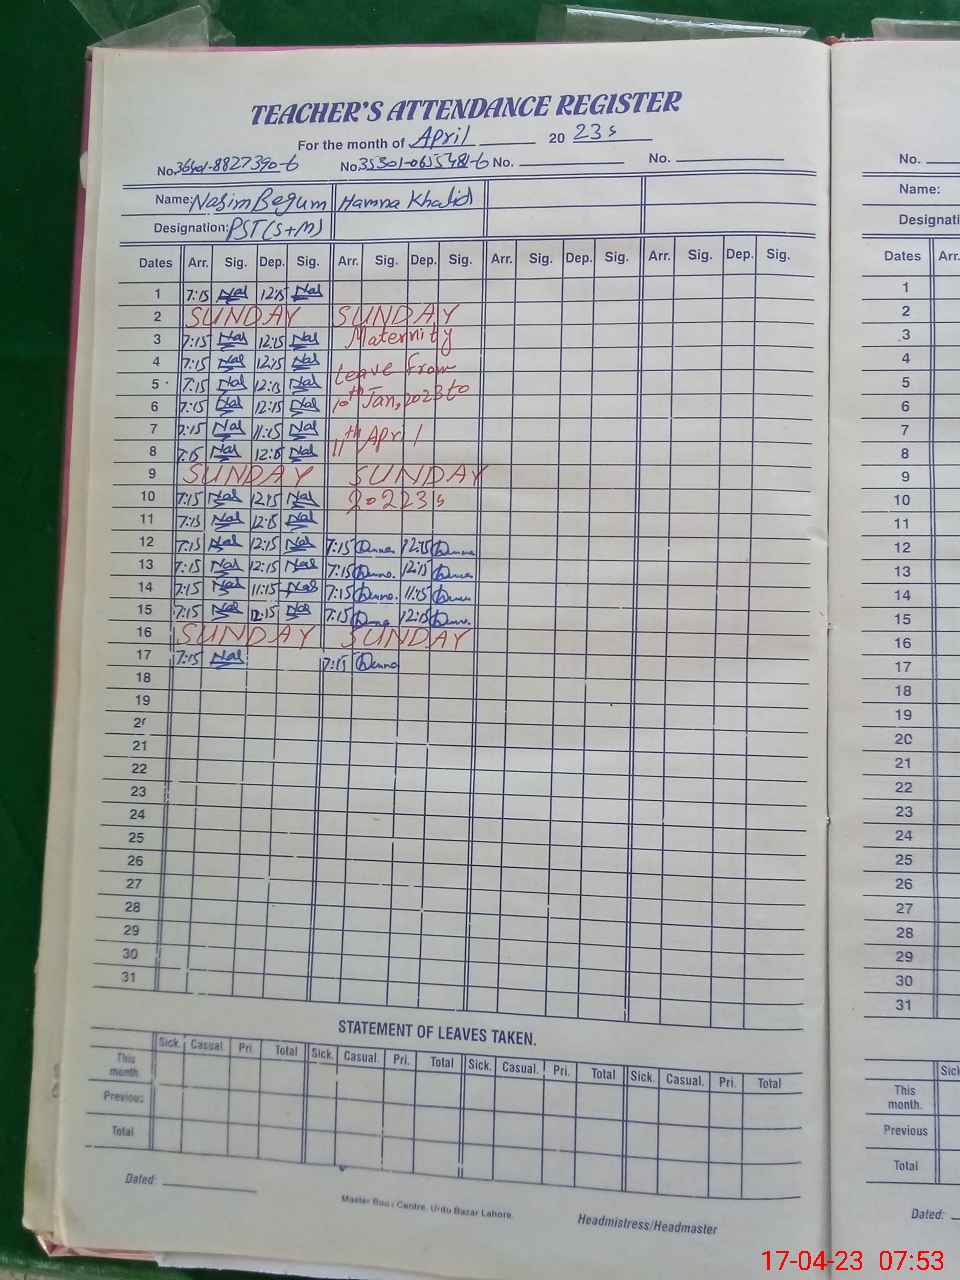 TEACHER'S ATTENDANCE REGISTER
For the month of April 20 23s
No. 36401-8827390-6 No. 35301-0655481-6 No. No. No.
Name: Nasim Begum Hamna Khalid Name:
Designation: PST (S+M)
Dates Arr. Sig. Dep. Sig. Arr. Sig. Dep. Sig. Arr. Sig. Dep. Sig. Arr. Sig. Dep. Sig. Dates Arr.
1 7:15 Nas 12:15 Nas 1
2 SUNDAY SUNDAY 2
3 7:15 Nas 12:15 Nas Maternity 3
4 7:15 Nas 12:15 Nas Leave from 4
5 7:15 Nas 12:15 Nas 10th Jan, 2023 to 5
6 7:15 Nas 12:15 Nas 6
7 7:15 Nas 11:15 Nas 11th April 7
8 7:15 Nas 12:15 Nas 8
9 SUNDAY SUNDAY 9
10 7:15 Nas 12:15 Nas 10
11 7:15 Nas 12:15 Nas 11
12 7:15 Nas 12:15 Nas 7:15 12:15 12
13 7:15 Nas 12:15 Nas 7:15 12:15 13
14 7:15 Nas 11:15 Nas 7:15 11:15 14
15 7:15 Nas 12:15 Nas 7:15 12:15 15
16 SUNDAY SUNDAY 16
17 7:15 Nas 7:15 17
18 18
19 19
20 20
21 21
22 22
23 23
24 24
25 25
26 26
27 27
28 28
29 29
30 30
31 31
STATEMENT OF LEAVES TAKEN.
Sick. Casual Pri. Total Sick. Casual. Pri. Total Sick. Casual. Pri. Total Sick. Casual. Pri. Total
This month This month.
Previous Previous
Total Total
Dated: Dated:
Headmistress/Headmaster
17-04-23 07:53